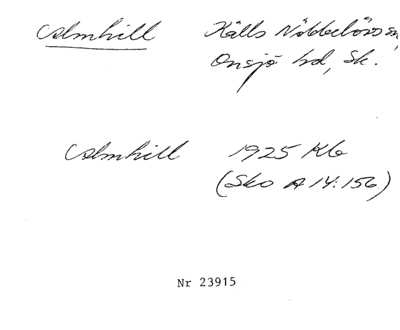 Calmhill Källs Nöbbelövs sn,
Onsjö hd, Sk.
Calmhill 1925 Kb
(Sko A 14:156)
Nr 23915